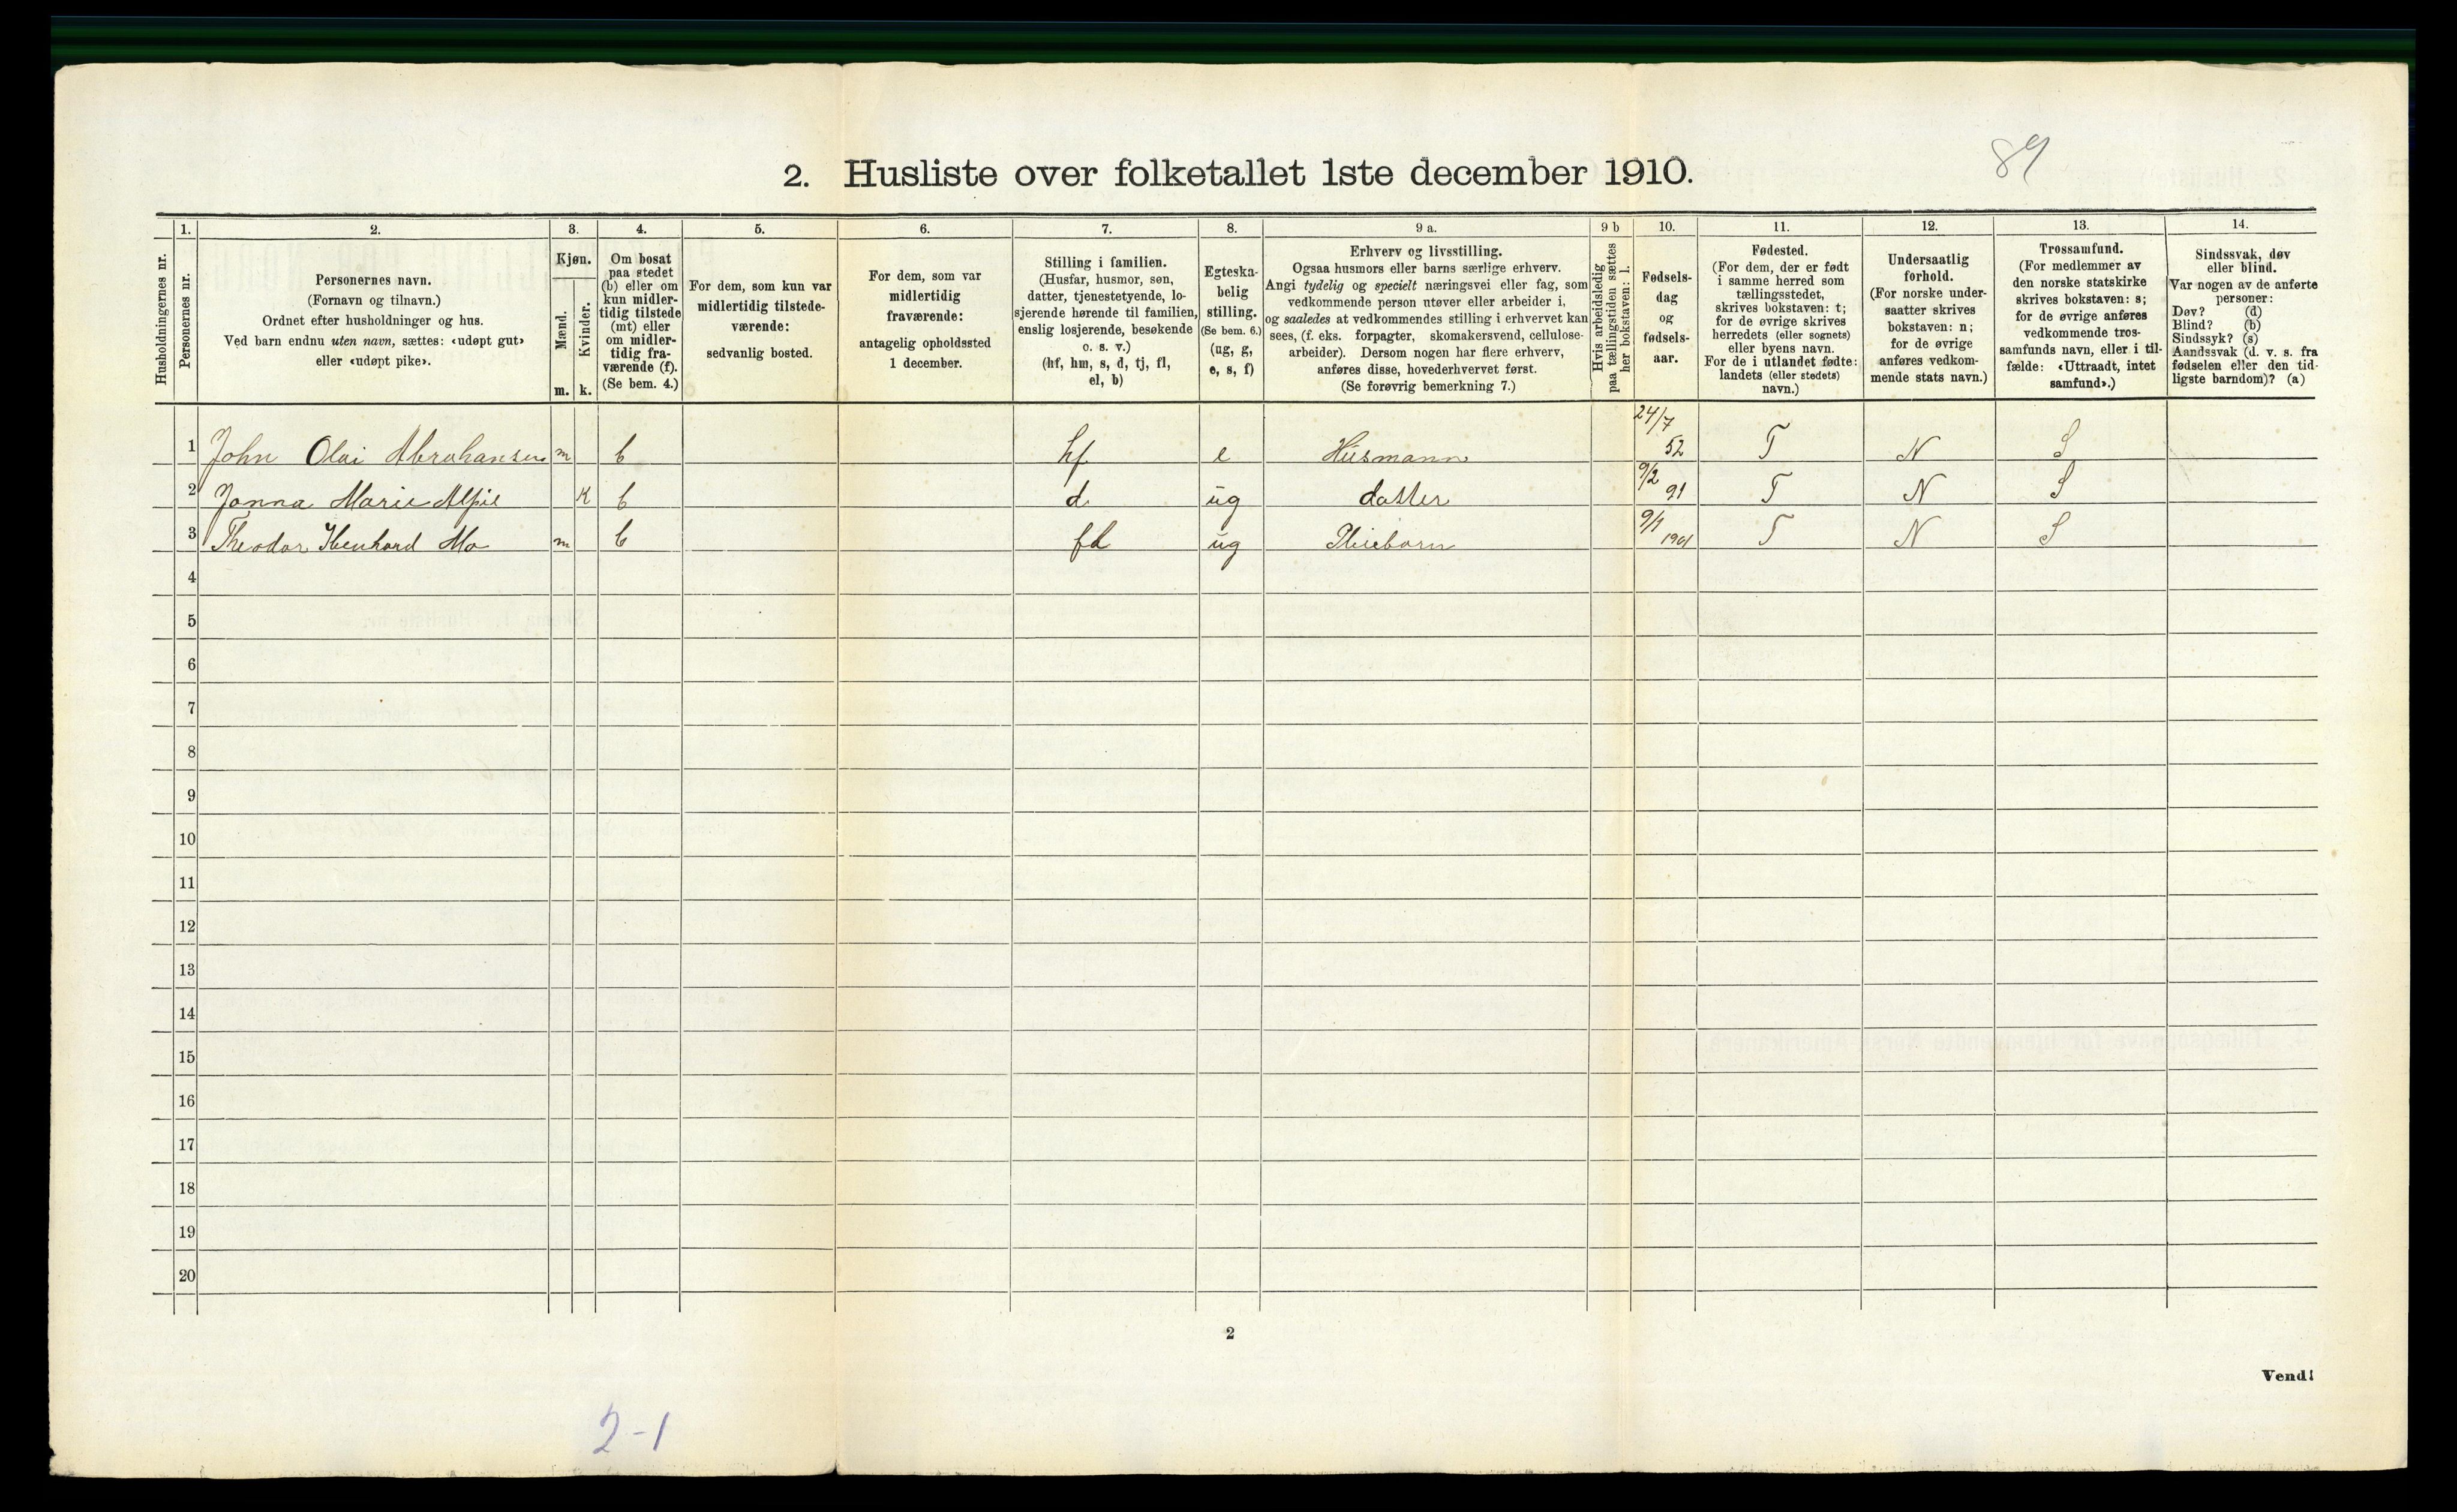 89
2. Husliste over folketallet 1ste december 1910.
Husholdningernes nr.
1.
Personernes nr.
2.
Personernes navn.
(Fornavn og tilnavn.)
Ordnet efter husholdninger og hus.
Ved barn endnu uten navn, sættes: «udøpt gut»
eller «udøpt pike».
3.
Kjøn.
Mænd.
Kvinder.
m. k.
4.
Om bosat
paa stedet
(b) eller om
kun midler-
tidig tilstede
(mt) eller
om midler-
tidig fra-
værende (f).
(Se bem. 4.)
5.
For dem, som kun var
midlertidig tilstede-
værende:
sedvanlig bosted.
6.
For dem, som var
midlertidig
fraværende:
antagelig opholdssted
1 december.
7.
Stilling i familien.
(Husfar, husmor, søn,
datter, tjenestetyende, lo-
sjerende hørende til familien,
enslig losjerende, besøkende
o. s. v.)
(hf, hm, s, d, tj, fl,
el, b)
8.
Egteska-
belig
stilling.
(Se bem. 6.)
(ug, g,
e, s, f)
9 a.
Erhverv og livsstilling.
Ogsaa husmors eller barns særlige erhverv.
Angi tydelig og specielt næringsvei eller fag, som
vedkommende person utøver eller arbeider i,
og saaledes at vedkommendes stilling i erhvervet kan
sees, (f. eks. forpagter, skomakersvend, cellulose-
arbeider). Dersom nogen har flere erhverv,
anføres disse, hovederhvervet først.
(Se forøvrig bemerkning 7.)
9 b
Hvis arbeidsledig
paa tællingstiden sættes
her bokstaven: l.
10.
Fødsels-
dag
og
fødsels-
aar.
11.
Fødested.
(For dem, der er født
i samme herred som
tællingsstedet,
skrives bokstaven: t;
for de øvrige skrives
herredets (eller sognets)
eller byens navn.
For de i utlandet fødte:
landets (eller stedets)
navn.)
12.
Undersaatlig
forhold.
(For norske under-
saatter skrives
bokstaven: n;
for de øvrige
anføres vedkom-
mende stats navn.)
13.
Trossamfund.
(For medlemmer av
den norske statskirke
skrives bokstaven: s;
for de øvrige anføres
vedkommende tros-
samfunds navn, eller i til-
fælde: «Uttraadt, intet
samfund».)
14.
Sindssvak, døv
eller blind.
Var nogen av de anførte
personer:
Døv? (d)
Blind? (b)
Sindssyk? (s)
Aandssvak (d. v. s. fra
fødselen eller den tid-
ligste barndom)? (a)
1 John Olai Abrahansen m b hf e Husmann 24/7 52 T N S
2 Jonna Marie K b d ug datter 9/2 91 T N S
3 Theodor Mo m b fl ug Pleiebarn 9/1 1901 T N S
4
5
6
7
8
9
10
11
12
13
14
15
16
17
18
19
20
2
Vend!
2-1